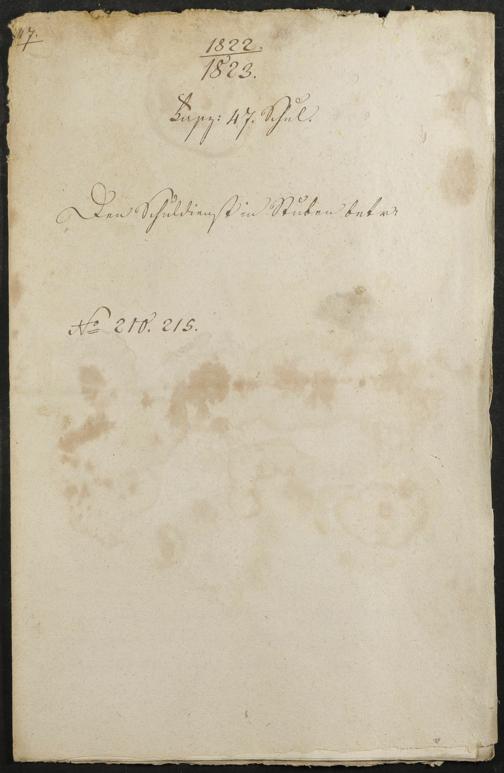 47.
1822.
1823.
Fasz: 47. Schul.
Den Schuldienst in Stuben betr.
No 210. 215.